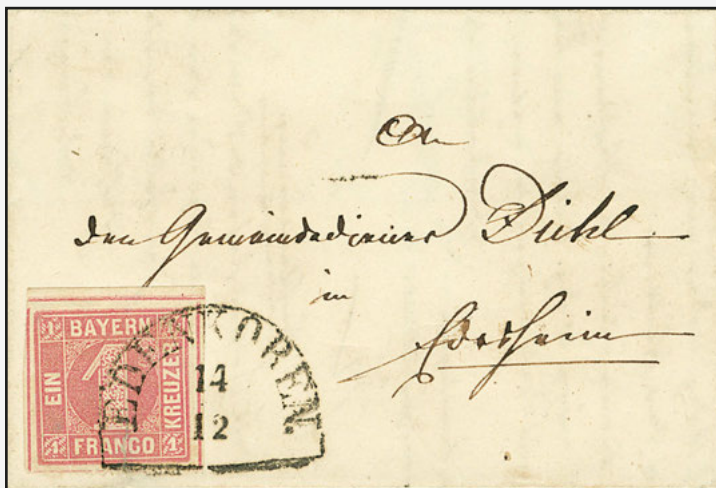 An
den Gemeindediener Diehl
in
Edesheim
BAYERN
EIN
1
KREUZER
FRANCO
1 1
EDENKOBEN
14
12